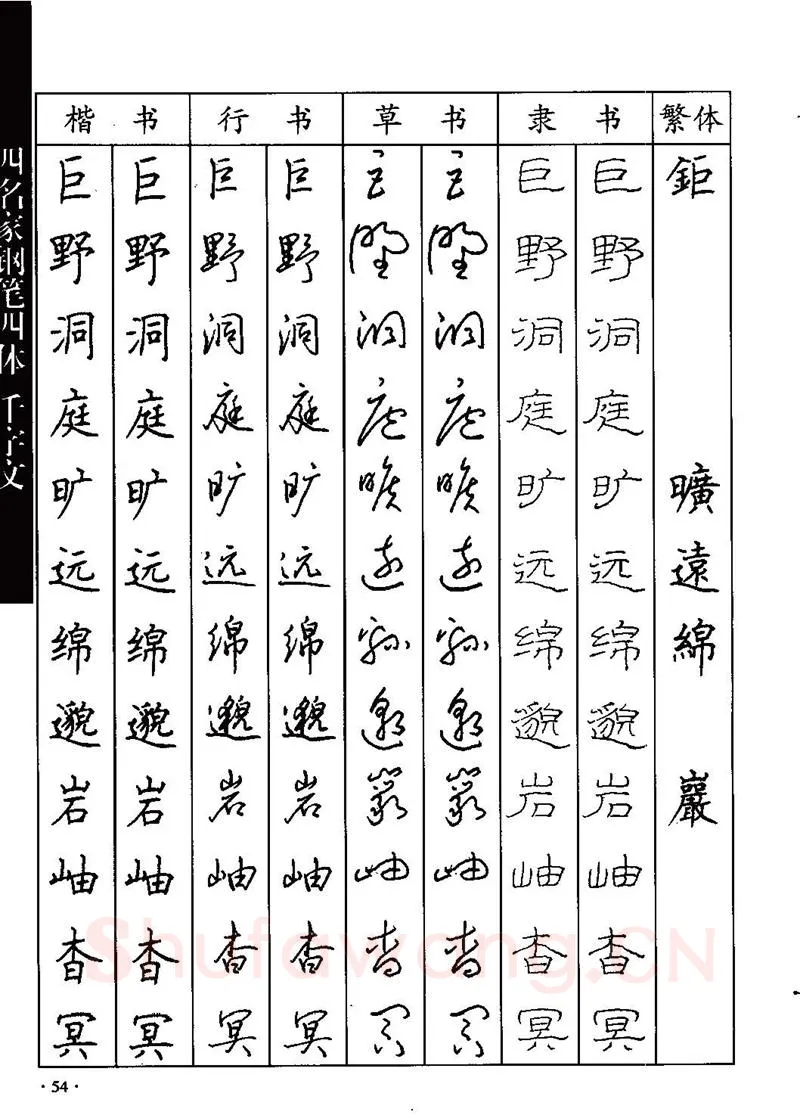 四名家钢笔四体千字文
楷书 行书 草书 隶书 繁体
巨 巨 巨 巨 巨 巨 巨 巨 鉅
野 野 野 野 野 野 野 野
洞 洞 洞 洞 洞 洞 洞 洞
庭 庭 庭 庭 庭 庭 庭 庭
旷 旷 旷 旷 旷 旷 旷 旷 曠
远 远 远 远 远 远 远 远 遠
绵 绵 绵 绵 绵 绵 绵 绵 綿
邈 邈 邈 邈 邈 邈 邈 邈
岩 岩 岩 岩 岩 岩 岩 岩 巖
岫 岫 岫 岫 岫 岫 岫 岫
杳 杳 杳 杳 杳 杳 杳 杳
冥 冥 冥 冥 冥 冥 冥 冥
Shufawang.CN
·54·